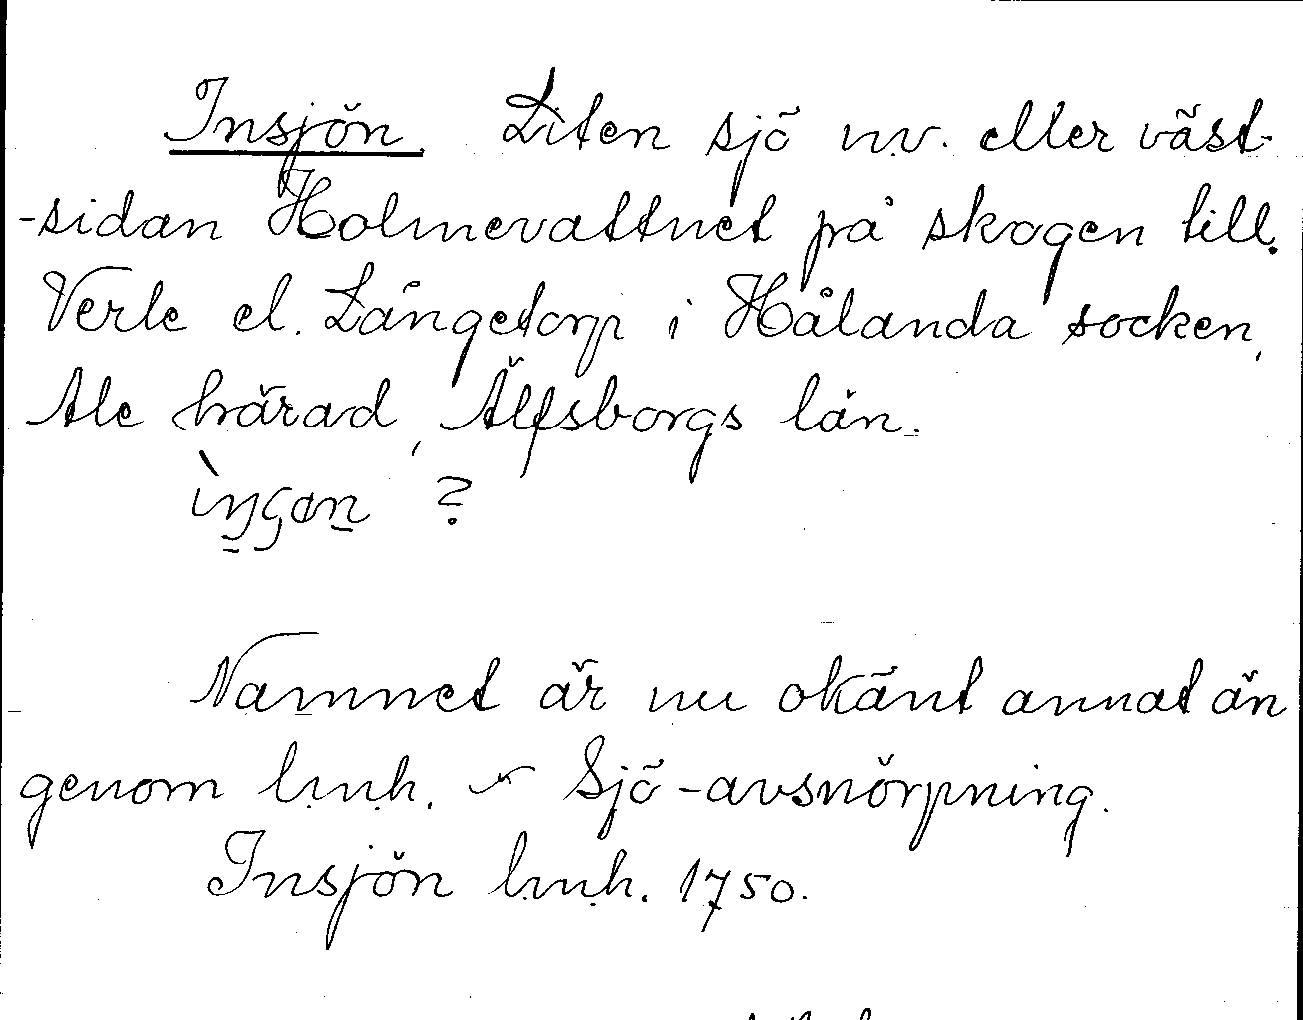 Insjön. Liten sjö n.v. eller väst-
-sidan Holmevattnet på skogen till.
Verle el. Långetorp i Hålanda socken,
Ale härad, Älfsborgs län.
?
Namnet är nu okänt annat än
genom l.m.h. Sjö-avsnörpning.
Insjön l.m.h. 1750.